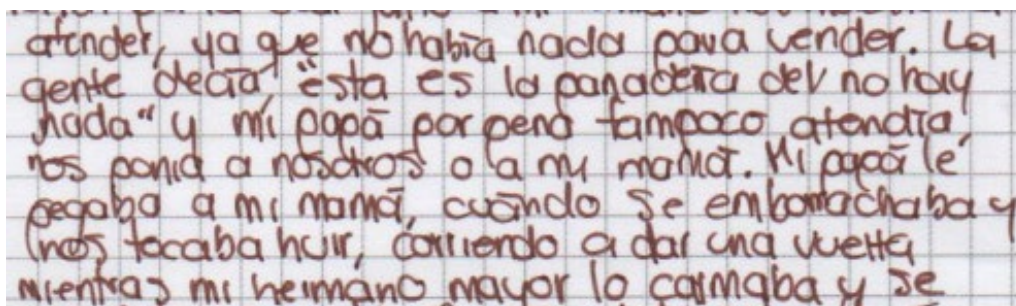 atender, ya que no había nada para vender. La
gente decía "esta es la panadería del no hay
nada" y mi papá por pena tampoco atendía,
nos ponía a nosotros o a mi mamá. Mi papá le
pegaba a mi mamá, cuándo se emborrachaba y
nos tocaba huir, corriendo a dar una vuelta
mientras mi hermano mayor lo calmaba y se